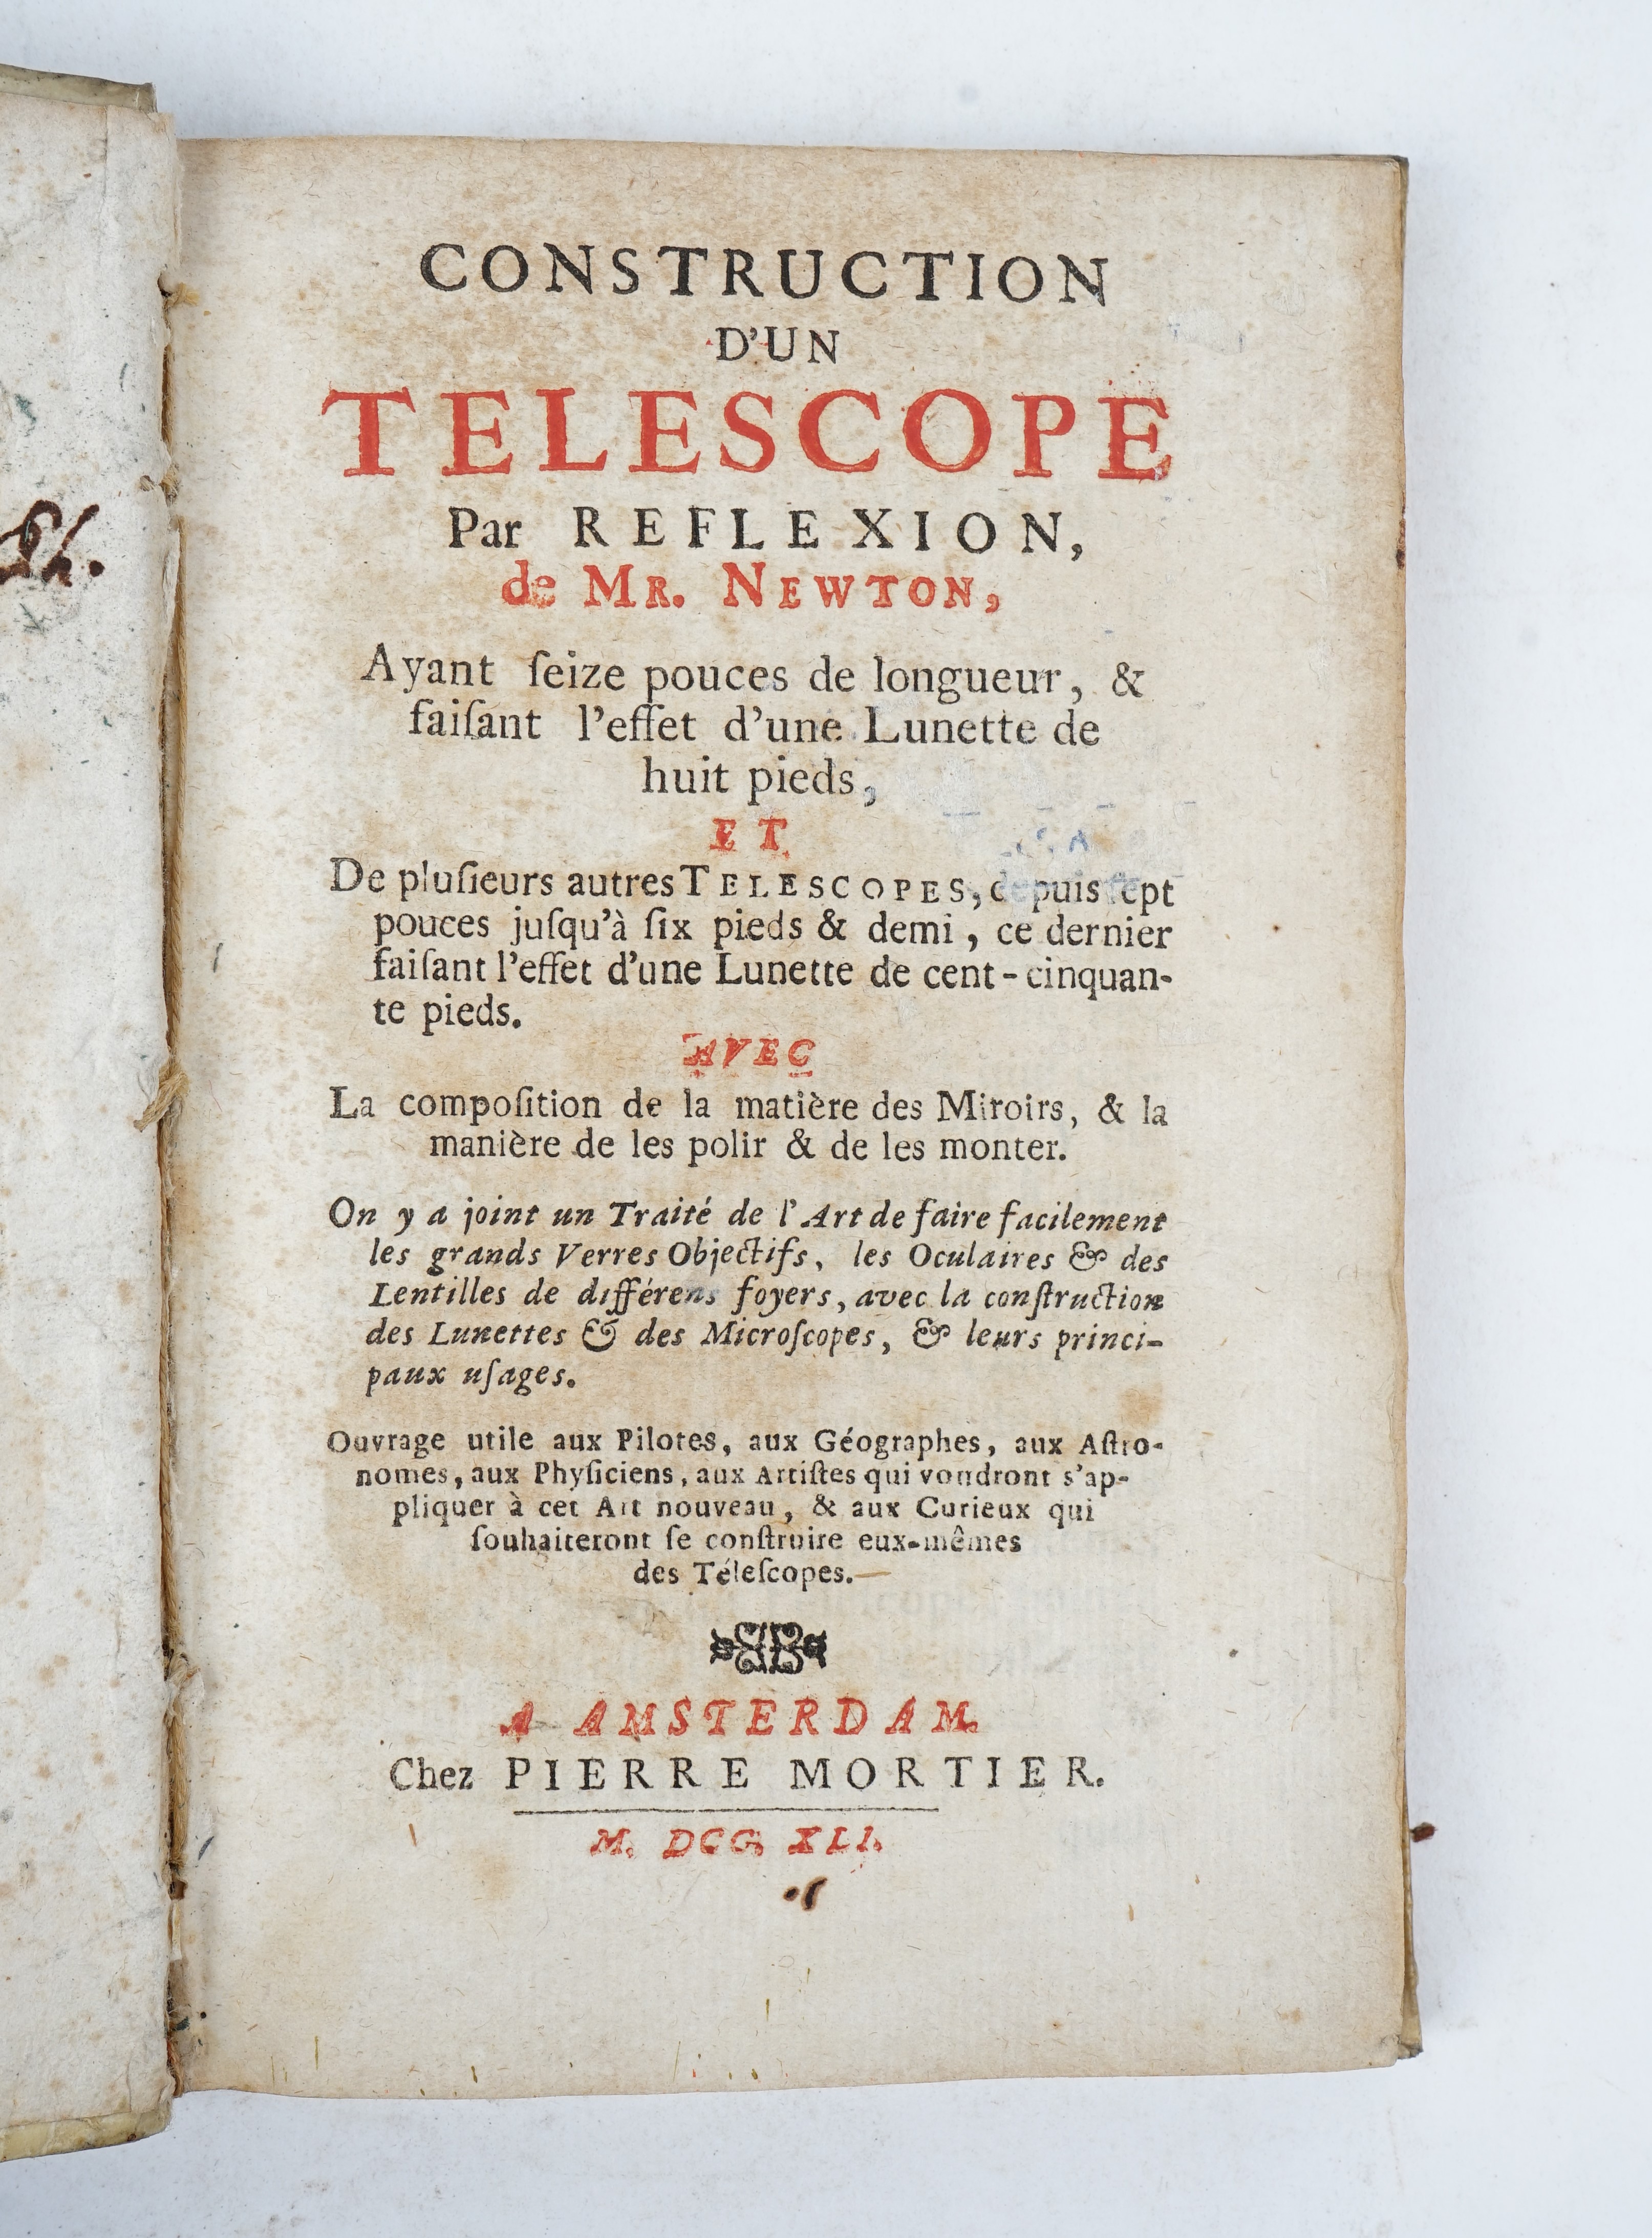 CONSTRUCTION
D'UN
TELESCOPE
Par REFLEXION,
de MR. NEWTON,
Ayant ſeize pouces de longueur, &
faiſant l'effet d'une Lunette de
huit pieds,
ET
De pluſieurs autres TELESCOPES, depuis ſept
pouces juſqu'à ſix pieds & demi, ce dernier
faiſant l'effet d'une Lunette de cent-cinquan-
te pieds.
AVEC
La compoſition de la matière des Miroirs, & la
manière de les polir & de les monter.
On y a joint un Traité de l'Art de faire facilement
les grands Verres Objectifs, les Oculaires & des
Lentilles de différens foyers, avec la conſtruction
des Lunettes & des Microſcopes, & leurs princi-
paux uſages.
Ouvrage utile aux Pilotes, aux Géographes, aux Aſtro-
nomes, aux Phyſiciens, aux Artiſtes qui voudront s'ap-
pliquer à cet Art nouveau, & aux Curieux qui
ſouhaiteront ſe conſtruire eux-mêmes
des Téleſcopes.
A AMSTERDAM.
Chez PIERRE MORTIER.
M. DCC. XLI.